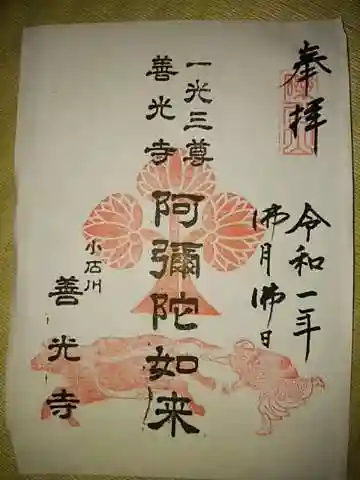 奉拝
令和一年
佛月佛日
一光三尊
善光寺
阿彌陀如来
小石川
善光寺